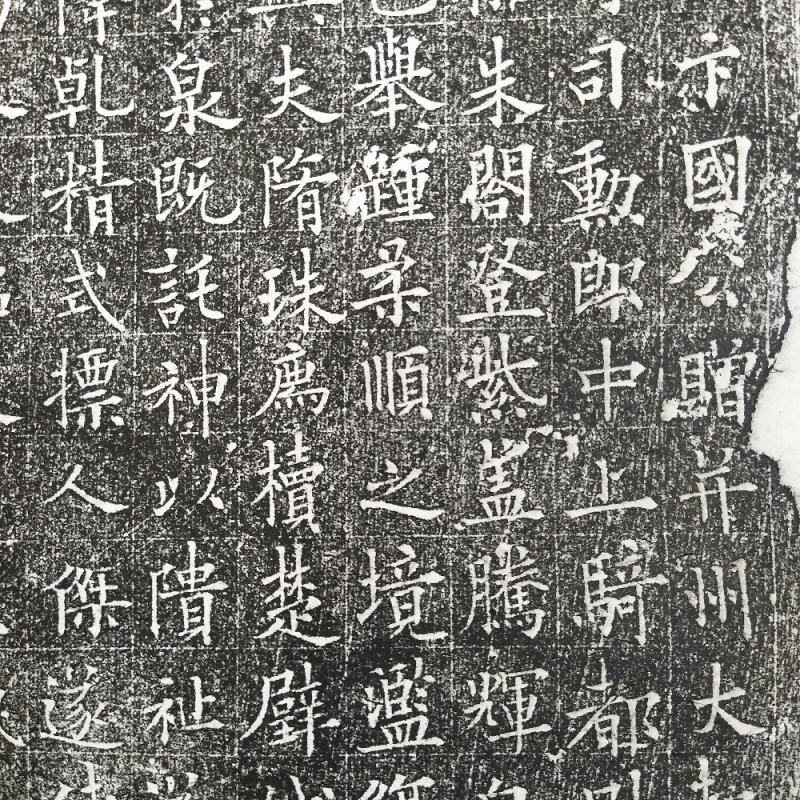 卞國襄公贈并州大
司勳郎中上騎都
朱閣登紫盖騰輝
舉踵柔順之境濫
夫隋珠廌櫝楚璧
泉既託神以隤祉
乹精式摽人傑遂